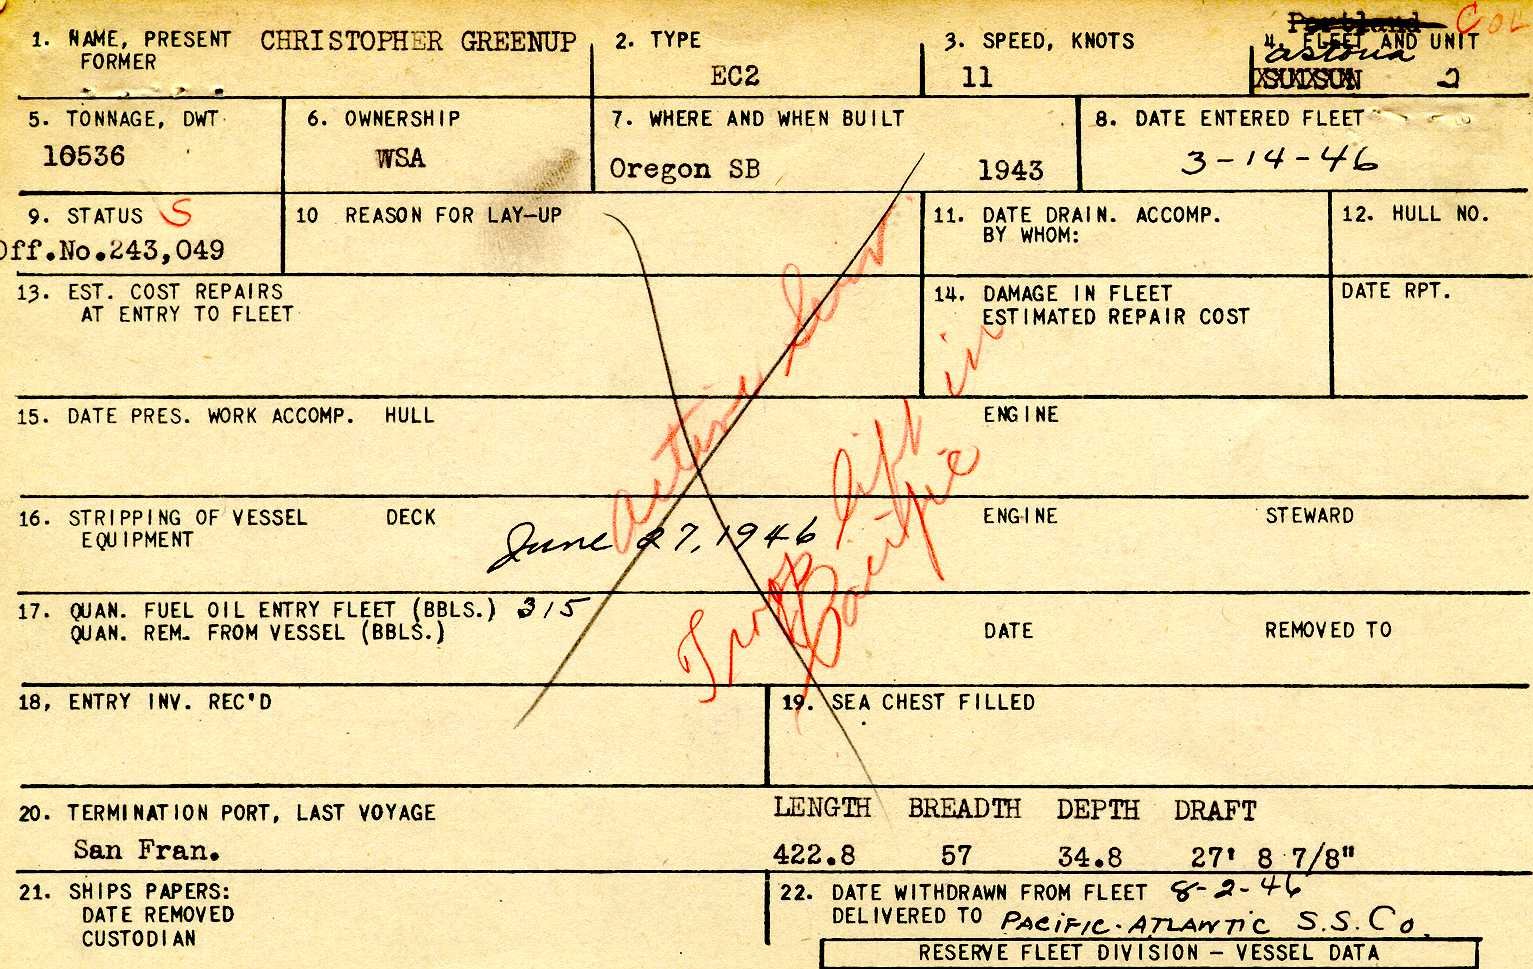 1. NAME, PRESENT CHRISTOPHER GREENUP
FORMER
2. TYPE
EC2
3. SPEED, KNOTS
11
Portland COL
4. FLEET AND UNIT
astoria
XSUISUN 2
5. TONNAGE, DWT
10536
6. OWNERSHIP
WSA
7. WHERE AND WHEN BUILT
Oregon SB 1943
8. DATE ENTERED FLEET
3-14-46
9. STATUS S
Off.No.243,049
10 REASON FOR LAY-UP
11. DATE DRAIN. ACCOMP.
BY WHOM:
12. HULL NO.
13. EST. COST REPAIRS
AT ENTRY TO FLEET
14. DAMAGE IN FLEET
ESTIMATED REPAIR COST
DATE RPT.
15. DATE PRES. WORK ACCOMP. HULL ENGINE
16. STRIPPING OF VESSEL DECK ENGINE STEWARD
EQUIPMENT
June 27, 1946
in
Pacific
17. QUAN. FUEL OIL ENTRY FLEET (BBLS.) 315
QUAN. REM. FROM VESSEL (BBLS.) DATE REMOVED TO
18, ENTRY INV. REC'D
19. SEA CHEST FILLED
20. TERMINATION PORT, LAST VOYAGE
San Fran.
LENGTH BREADTH DEPTH DRAFT
422.8 57 34.8 27' 8 7/8"
21. SHIPS PAPERS:
DATE REMOVED
CUSTODIAN
22. DATE WITHDRAWN FROM FLEET 8-2-46
DELIVERED TO PACIFIC-ATLANTIC S.S.Co.
RESERVE FLEET DIVISION – VESSEL DATA